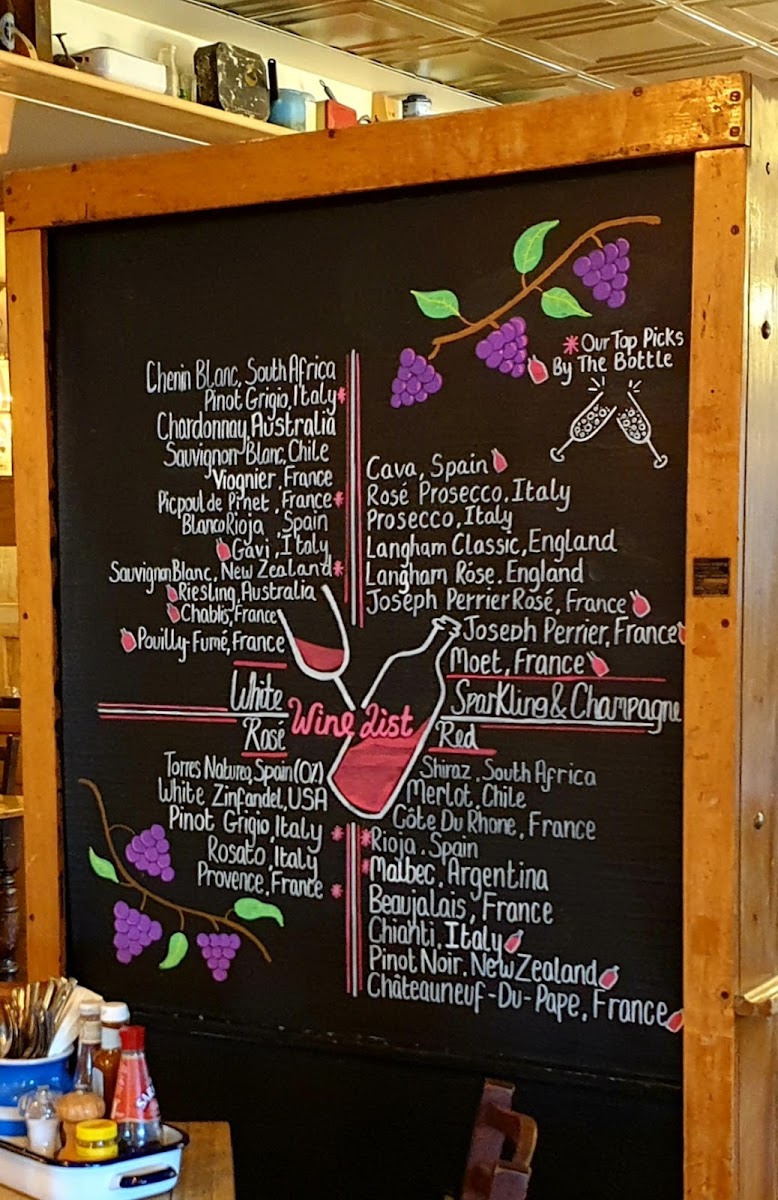 *Our Top Picks
By The Bottle
Chenin Blanc, South Africa
Pinot Grigio, Italy*
Chardonnay, Australia
Sauvignon-Blanc, Chile
Viognier, France
Picpoul de Pinet, France*
Blanco Rioja, Spain
Gavi, Italy
Sauvignon Blanc, New Zealand*
Riesling, Australia
Chablis, France
Pouilly-Fumé, France
White
Cava, Spain
Rosé Prosecco, Italy
Prosecco, Italy
Langham Classic, England
Langham Róse. England
Joseph Perrier Rosé, France
Joseph Perrier, France
Moet, France
Sparkling & Champagne
Wine List
Rosé
Torres Natureo, Spain (0%)
White Zinfandel, USA
Pinot Grigio, Italy *
Rosato, Italy
Provence, France *
Red
Shiraz, South Africa
Merlot, Chile
Côte Du Rhone, France
*Rioja, Spain
*Malbec, Argentina
Beaujalais, France
Chianti, Italy
Pinot Noir, New Zealand
Châteauneuf-Du-Pape, France